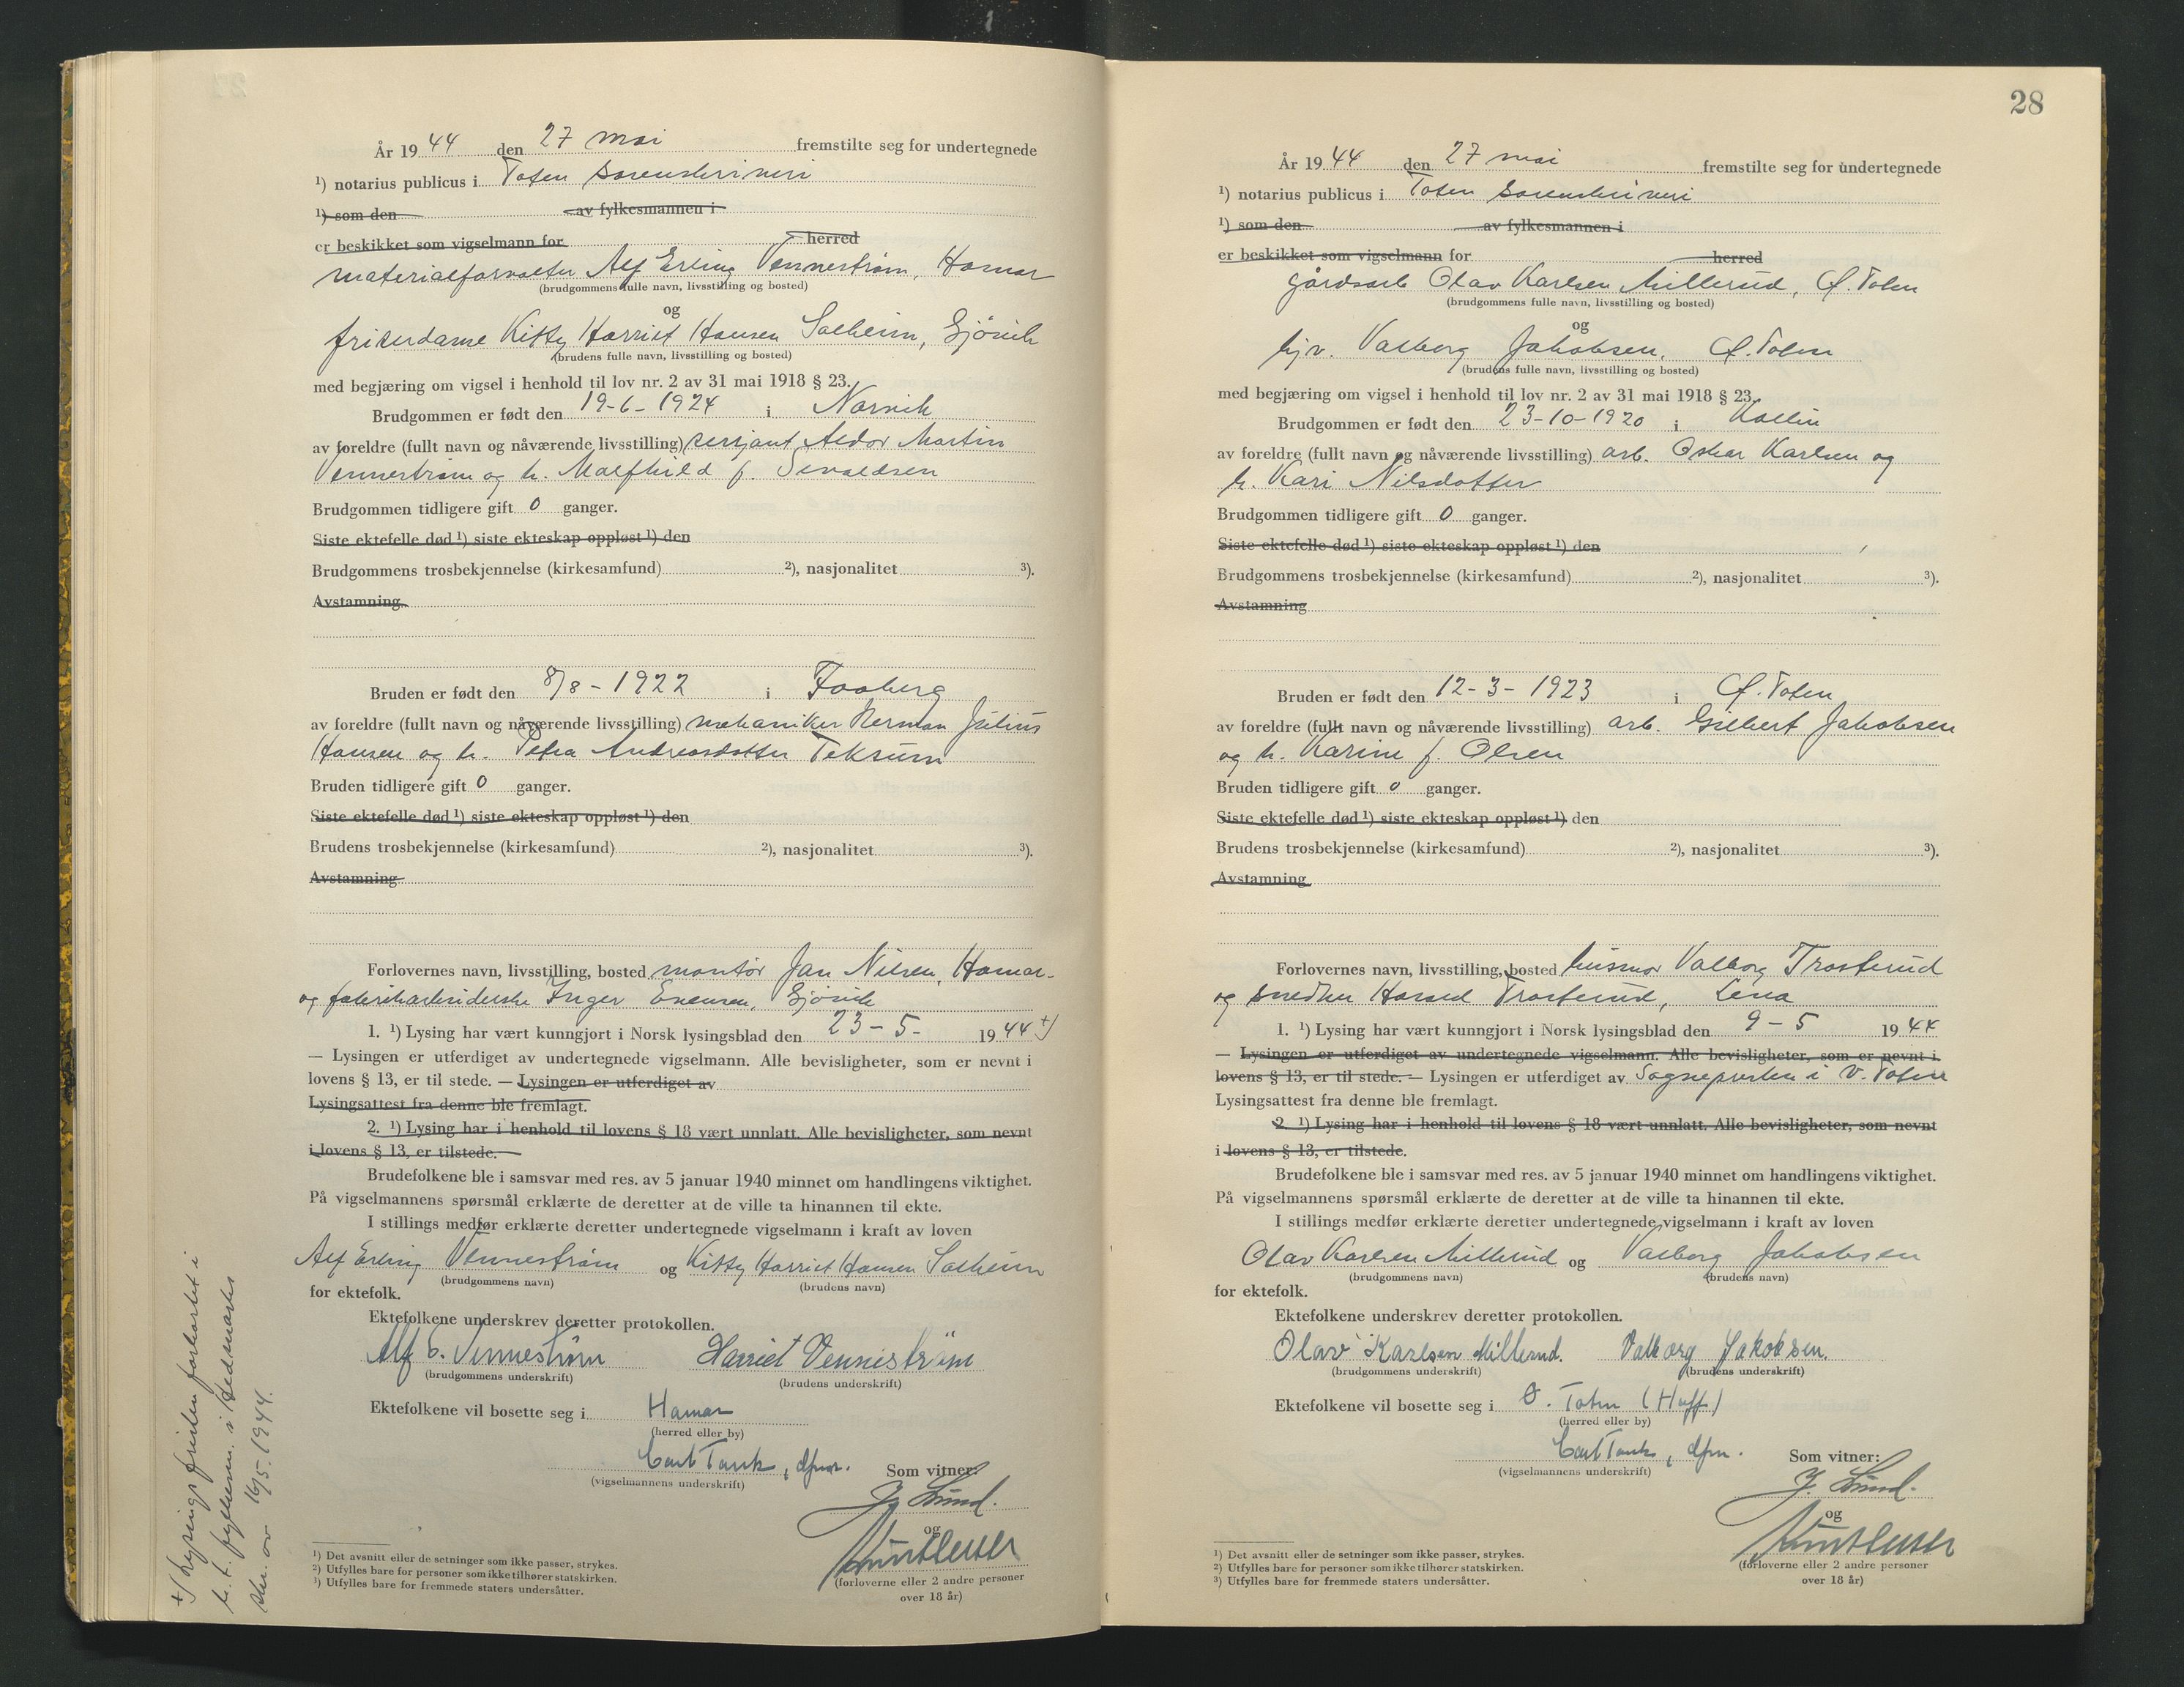 År 1944 den 27 mai fremstilte seg for undertegnede
¹) notarius publicus i Toten sorenskriveri
¹) som den av fylkesmannen i
er beskikket som vigselmann for herred
materialforvalter Alf Erling Vennestrøm, Hamar
(brudgommens fulle navn, livsstilling og bosted)
og
friserdame Kitty Harriet Hansen Solheim, Gjövik
(brudens fulle navn, livsstilling og bosted)
med begjæring om vigsel i henhold til lov nr. 2 av 31 mai 1918 § 23.
Brudgommen er født den 19-6-1924 i Narvik
av foreldre (fullt navn og nåværende livsstilling) sersjant Aldor Martin
Vennestrøm og h. Malfhild f. Sivaldsen
Brudgommen tidligere gift 0 ganger.
Siste ektefelle død ¹) siste ekteskap oppløst ¹) den
Brudgommens trosbekjennelse (kirkesamfund) ²), nasjonalitet ³).
Avstamning
Bruden er født den 8/8-1922 i Faaberg
av foreldre (fullt navn og nåværende livsstilling) mekaniker Herman Julius
Hansen og h. Petra Andreasdatter Teksum
Bruden tidligere gift 0 ganger.
Siste ektefelle død ¹) siste ekteskap oppløst ¹) den
Brudens trosbekjennelse (kirkesamfund) ²), nasjonalitet ³).
Avstamning
Forlovernes navn, livsstilling, bosted montør Jan Nilsen, Hamar
og fabrikkarbeiderske Inger Evensen, Gjövik
1. ¹) Lysing har vært kunngjort i Norsk lysingsblad den 23-5- 1944 +)
— Lysingen er utferdiget av undertegnede vigselmann. Alle bevisligheter, som er nevnt i
lovens § 13, er til stede. — Lysingen er utferdiget av
Lysingsattest fra denne ble fremlagt.
2. ¹) Lysing har i henhold til lovens § 18 vært unnlatt. Alle bevisligheter, som nevnt
i lovens § 13, er tilstede.
Brudefolkene ble i samsvar med res. av 5 januar 1940 minnet om handlingens viktighet.
På vigselmannens spørsmål erklærte de deretter at de ville ta hinannen til ekte.
I stillings medfør erklærte deretter undertegnede vigselmann i kraft av loven
Alf Erling Vennestrøm og Kitty Harriet Hansen Solheim
(brudgommens navn) (brudens navn)
for ektefolk.
Ektefolkene underskrev deretter protokollen.
Alf E. Vennestrøm Harriet Venneström
(brudgommens underskrift) (brudens underskrift)
Ektefolkene vil bosette seg i Hamar
(herred eller by)
Carl Tank, dfm. Som vitner:
(vigselmannens underskrift)
J. Lund.
og
(forloverne eller 2 andre personer
over 18 år)
¹) Det avsnitt eller de setninger som ikke passer, strykes.
²) Utfylles bare for personer som ikke tilhører statskirken.
³) Utfylles bare for fremmede staters undersåtter.
+) Lysingsfristen forkortet i
h. t. fylkesm. i Hedmarks
skr. av 16/5.1944.
28
År 1944 den 27 mai fremstilte seg for undertegnede
¹) notarius publicus i Toten sorenskriveri
¹) som den av fylkesmannen i
er beskikket som vigselmann for herred
gårdsarb Olav Karlsen Millerud, Ø. Toten
(brudgommens fulle navn, livsstilling og bosted)
og
hjv. Valborg Jakobsen, Ø. Toten
(brudens fulle navn, livsstilling og bosted)
med begjæring om vigsel i henhold til lov nr. 2 av 31 mai 1918 § 23.
Brudgommen er født den 23-10-1920 i Kolbu
av foreldre (fullt navn og nåværende livsstilling) arb. Oskar Karlsen og
h. Kari Nilsdotter
Brudgommen tidligere gift 0 ganger.
Siste ektefelle død ¹) siste ekteskap oppløst ¹) den
Brudgommens trosbekjennelse (kirkesamfund) ²), nasjonalitet ³).
Avstamning
Bruden er født den 12-3-1923 i Ø. Toten
av foreldre (fullt navn og nåværende livsstilling) arb. Gilbert Jakobsen
og h. Karine f. Olsen
Bruden tidligere gift 0 ganger.
Siste ektefelle død ¹) siste ekteskap oppløst ¹) den
Brudens trosbekjennelse (kirkesamfund) ²), nasjonalitet ³).
Avstamning
Forlovernes navn, livsstilling, bosted husmor Valborg Trosterud
og snedker Harald Trosterud, Lena
1. ¹) Lysing har vært kunngjort i Norsk lysingsblad den 9-5 1944
— Lysingen er utferdiget av undertegnede vigselmann. Alle bevisligheter, som er nevnt i
lovens § 13, er til stede. — Lysingen er utferdiget av Sogneprsten i V. Toten
Lysingsattest fra denne ble fremlagt.
2. ¹) Lysing har i henhold til lovens § 18 vært unnlatt. Alle bevisligheter, som nevnt
i lovens § 13, er tilstede.
Brudefolkene ble i samsvar med res. av 5 januar 1940 minnet om handlingens viktighet.
På vigselmannens spørsmål erklærte de deretter at de ville ta hinannen til ekte.
I stillings medfør erklærte deretter undertegnede vigselmann i kraft av loven
Olav Karlsen Millerud og Valborg Jakobsen
(brudgommens navn) (brudens navn)
for ektefolk.
Ektefolkene underskrev deretter protokollen.
Olav Karlsen Millerud. Valborg Jakobsen.
(brudgommens underskrift) (brudens underskrift)
Ektefolkene vil bosette seg i Ø. Toten (Hoff)
(herred eller by)
Carl Tank, dfm. Som vitner:
(vigselmannens underskrift)
J. Lund.
og
(forloverne eller 2 andre personer
over 18 år)
¹) Det avsnitt eller de setninger som ikke passer, strykes.
²) Utfylles bare for personer som ikke tilhører statskirken.
³) Utfylles bare for fremmede staters undersåtter.